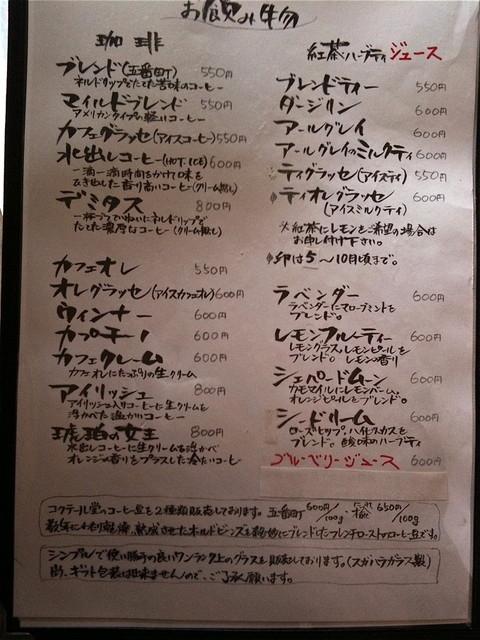 お飲み物
珈琲
ブレンド(五番町) 550円
ネルドリップでたてた苦味のコーヒー
マイルドブレンド 550円
アメリカンタイプの軽いコーヒー
カフェグラッセ(アイスコーヒー) 550円
水出しコーヒー(HOT.ICE) 600円
一滴一滴時間をかけて味を
ひき出した香り高いコーヒー(クリーム無し)
デミタス 800円
一杯づつていねいにネルドリップで
たてた濃厚なコーヒー(クリーム無し)
カフェオレ 550円
オレグラッセ(アイスカフェオレ) 600円
ウィンナー 600円
カプチーノ 600円
カフェクレーム 600円
カフェオレにたっぷりの生クリーム
アイリッシュ 800円
アイリッシュ入りコーヒーに生クリームを
浮かべた温かいコーヒー
琥珀の女王 800円
水出しコーヒーに生クリームを浮かべ
オレンジの香りをプラスした冷たいコーヒー
紅茶・ハーブティ ジュース
ブレンドティー 550円
ダージリン 600円
アールグレイ 600円
アールグレイのミルクティ 600円
ティグラッセ(アイスティ) 550円
ティオレグラッセ 600円
(アイスミルクティ)
※紅茶にレモンをご希望の場合は
お申し付け下さい。
印は5〜10月頃まで。
ラベンダー 600円
ラベンダーにマローブミントを
ブレンド。
レモンフルーティー 600円
レモングラス、レモンピールを
ブレンド。レモンの香り
シェパードムーン 600円
カモマイルにレモンバーム、
オレンジピールをブレンド。
シードリーム 600円
ローズヒップ、ハイビスカスを
ブレンド。酸味のハーブティ
ブルーベリージュース 600円
コクテール堂のコーヒー豆を2種類販売しております。五番町600円/100g・ 650円/100g
数年に わたり乾燥、熟成させたオールドビーンズを絶妙にブレンドしたフレンチローストのコーヒー豆です。
シンプルで使い勝手の良いワンランク上のグラスを販売しております。(スガハラガラス製)
尚、ギフト包装は出来ませんので、ご了承願います。